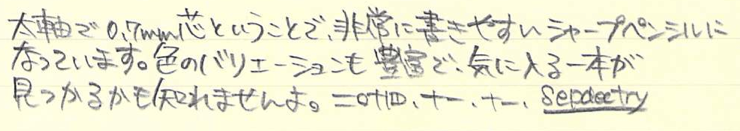 太軸で0.7mm芯ということで、非常に書きやすいシャープペンシルに
なっています。色のバリエーションも豊富で、気に入る一本が
見つかるかも知れませんよ。二〇十四、十一、十一、